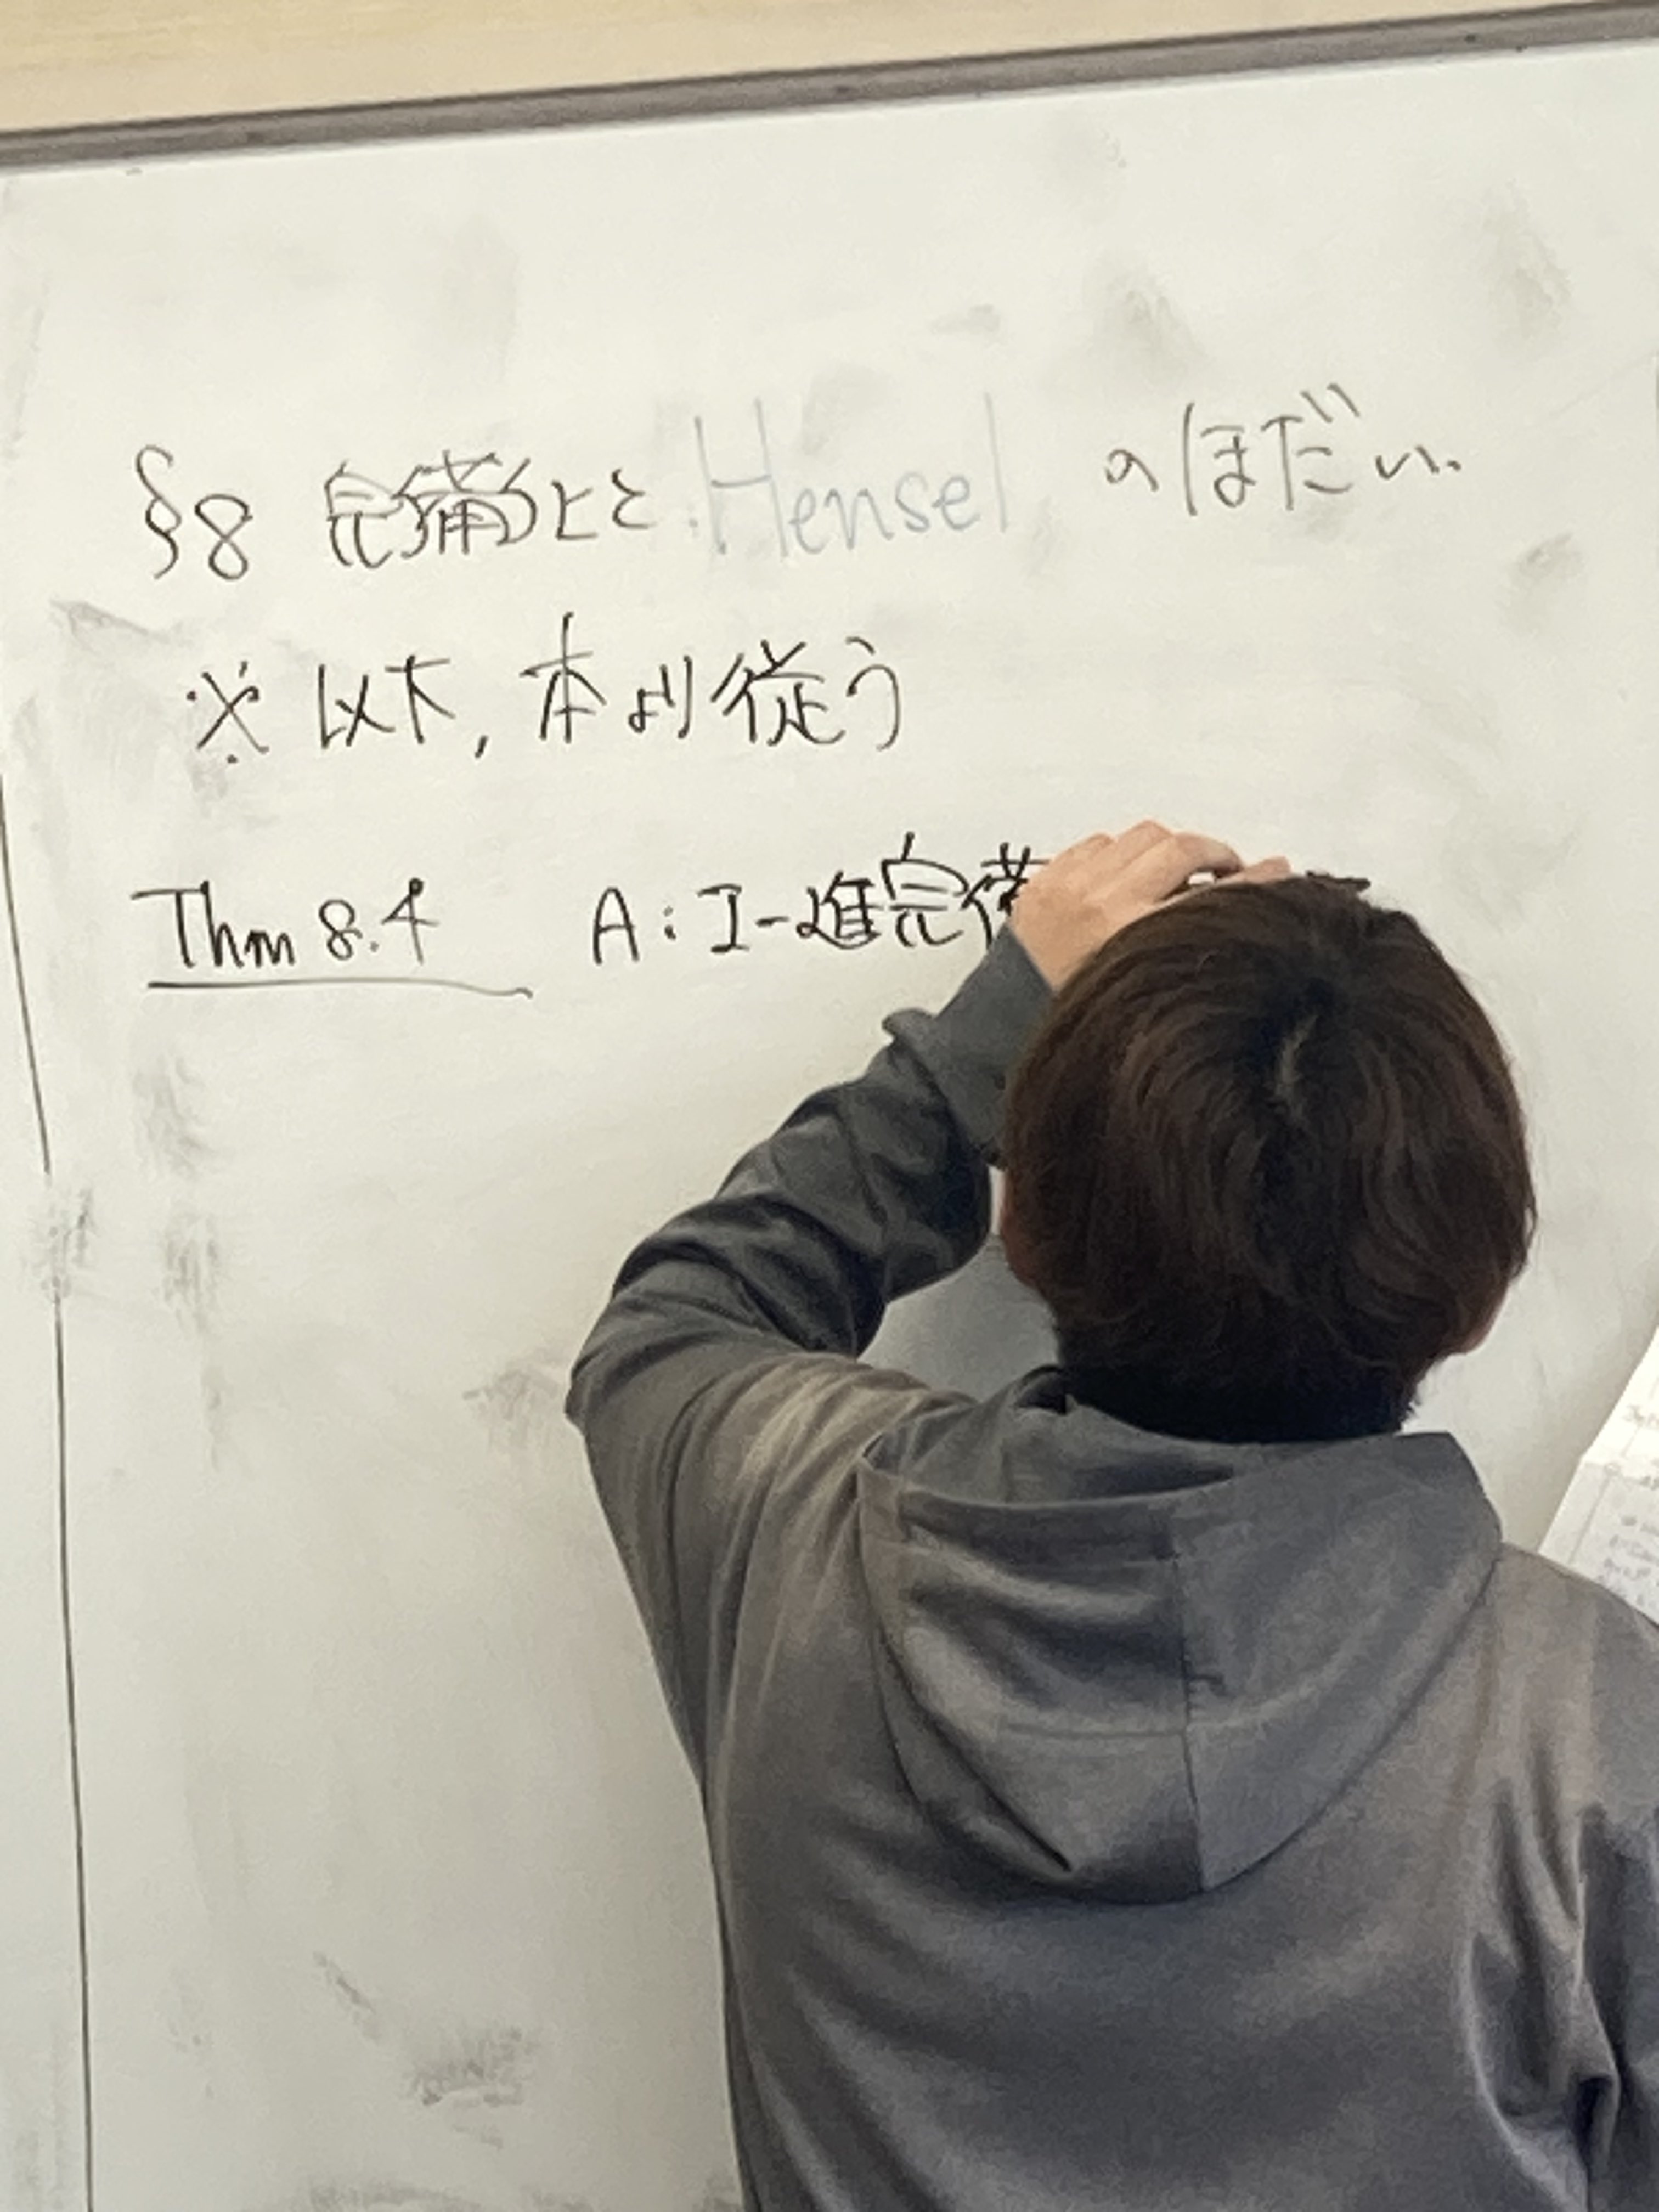 §8 完備化と Hensel のほだい.
※ 以下, 本より従う
Thm 8.4 A: I-進完備